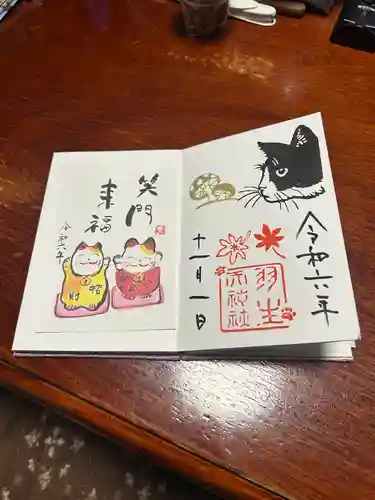 笑門
来福
令和六年
令和六年
羽生
天神社
十一月一日